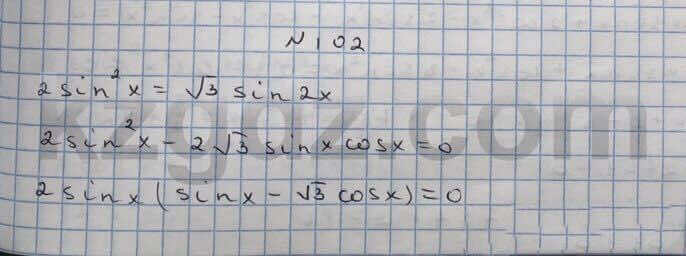 N 102
2 sin²x = √3 sin 2x
2 sin²x - 2√3 sinx cosx = 0
2 sinx ( sinx - √3 cosx ) = 0
kzgdz.com